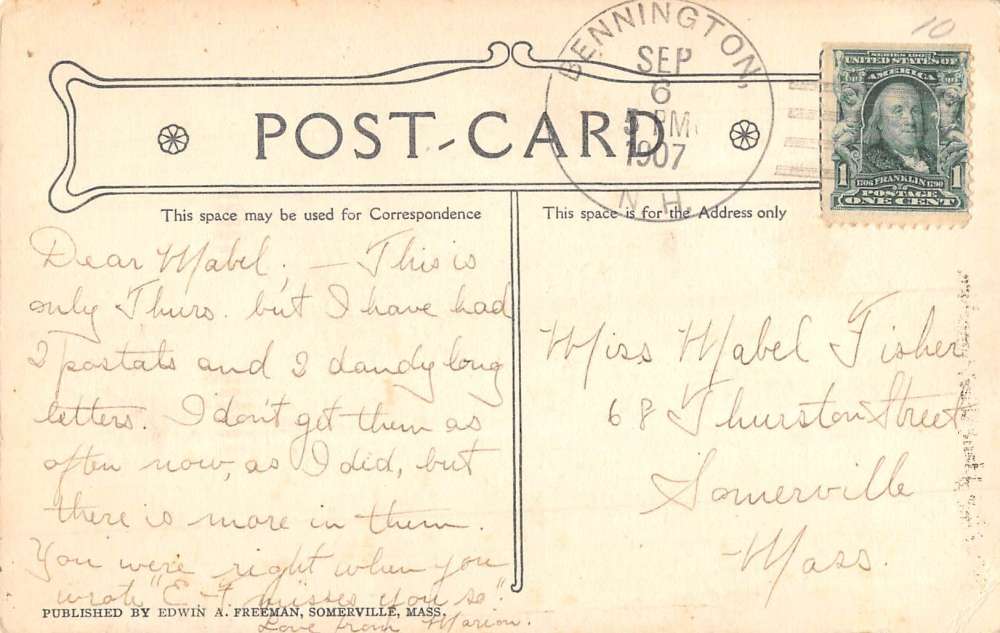 10
BENNINGTON,
SEP
6
5 PM
1907
N.H.
SERIES 1902
UNITED STATES OF
AMERICA
1706 FRANKLIN 1790
POSTAGE
1 1
ONE CENT
POST-CARD
This space may be used for Correspondence
This space is for the Address only
Dear Mabel; — This is
only Thurs. but I have had
2 postals and 2 dandy long
letters. I don't get them as
often now, as I did, but
there is more in them.
You were right when you
wrote "E– misses you so".
Love from Marion.
Miss Mabel Fisher
68 Thurston Street
Somerville
Mass.
PUBLISHED BY EDWIN A. FREEMAN, SOMERVILLE, MASS.